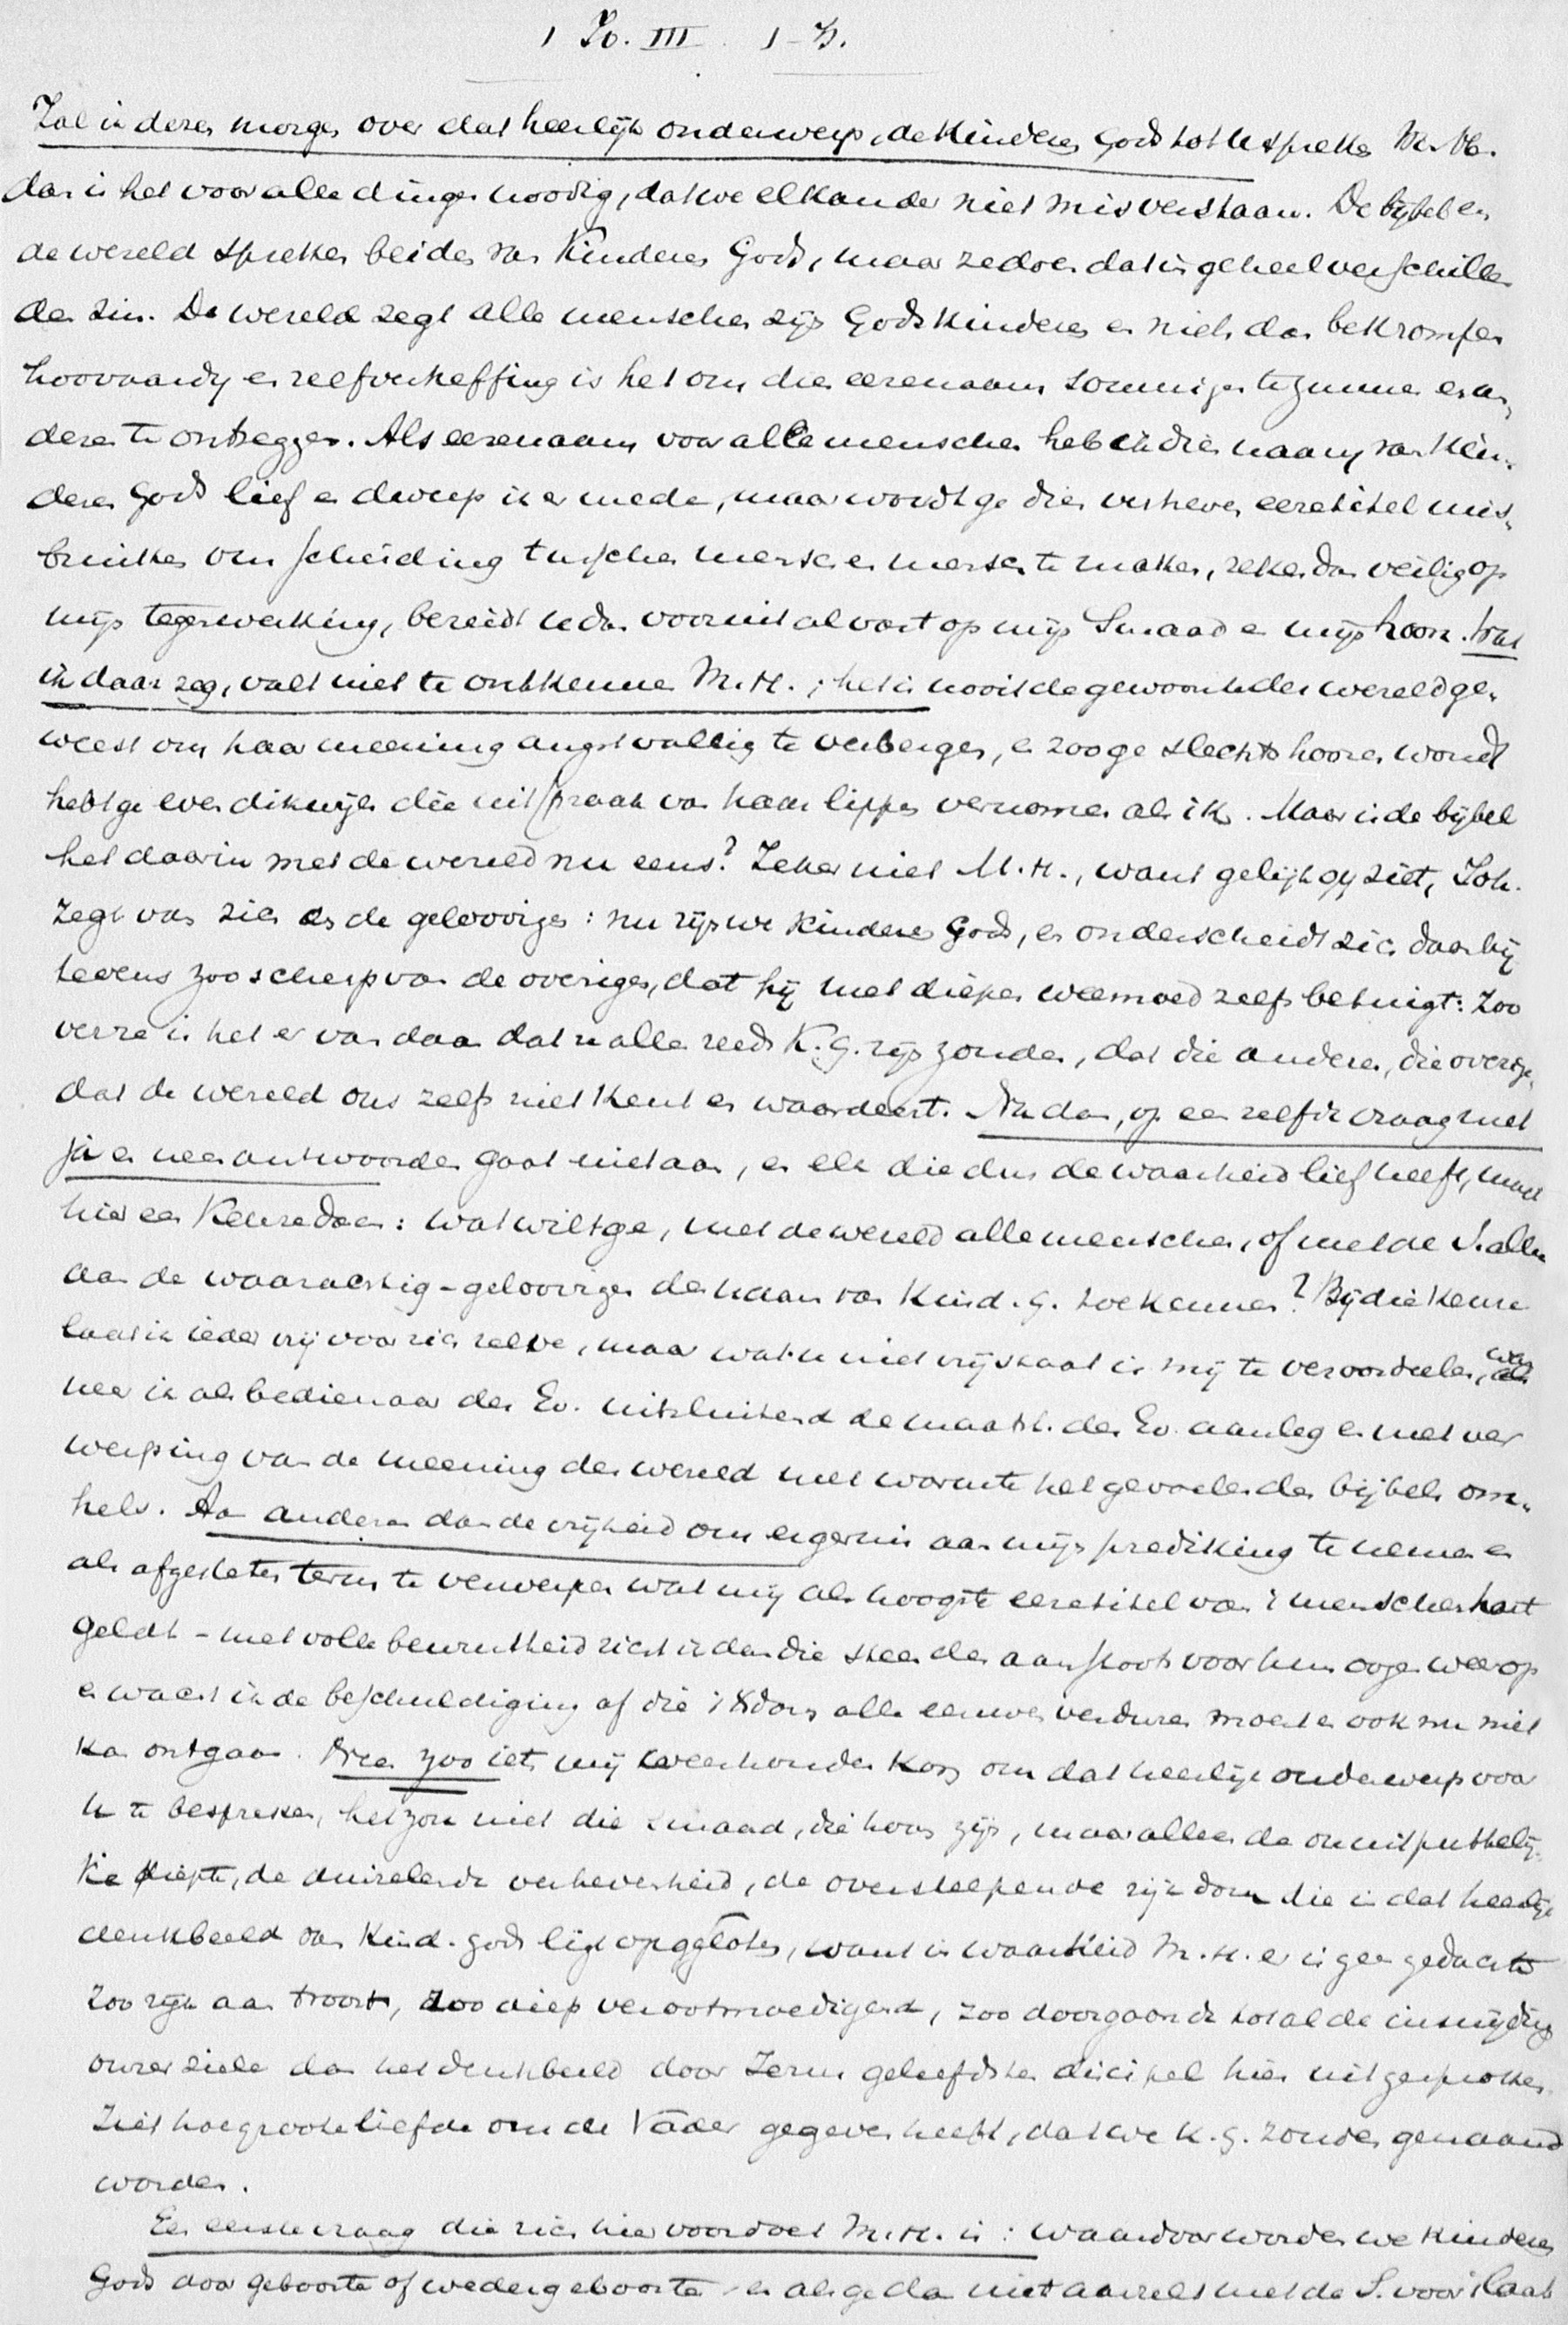 1 Jo. III 1-3.
Zal ik dezen morgen over dat heerlijk onderwerp, de Kinderen Gods tot U spreken M. H.
dan is het voor alle dingen noodig, dat we elkander niet misverstaan. De bijbel en
de wereld spreken beiden van Kinderen Gods, maar ze doen dat in geheel verschillen
den zin. De wereld zegt alle menschen zijn Gods kinderen en niets dan bekrompen
hoovaardij en zelfverheffing is het om dien eerenaam sommigen te gunnen en an,
deren te ontzeggen. Als eerenaam voor alle menschen heb ik dien naam van Kin,
deren Gods lief en dweep ik er mede, maar wordt ge dien verheven eeretitel mis,
bruiken om scheiding tusschen mensch en mensch te maken, reken dan veilig op
mijn tegenwerking, bereidt u dan vooruit alvast op mijn smaad en mijn hoon. Wat
ik daar zeg, valt niet te ontkennen M.H.; het is nooit de gewoonte der wereld ge,
weest om haar meening angstvallig te verbergen, en zoo ge slechts hooren wondt
hebt ge even dikwijls die uitspraak van haar lippen vernomen als ik. Maar is de bijbel
het daarin met de wereld nu eens? Zeker niet M.H., want gelijk gij ziet, Joh.
zegt van zich en de geloovigen: nu zijn we Kinderen Gods, en onderscheidt zich daarbij
tevens zoo scherp van de overigen, dat hij met diepen weemoed zelfs betuigt: Zoo
verre is het er van daan dat ze allen reeds K.G. zijn zouden, dat die anderen, die overige,
dat de wereld ons zelfs niet kent en waardeert. Nu dan, op een zelfde vraag met
ja en neen antwoorden gaat niet aan, en elk die dus de waarheid lief heeft, moet
hier een Keuze doen: wat wilt ge, met de wereld alle menschen, of met de S. alleen
aan de waarachtig-geloovigen den naam van Kind. G. toekennen? Bij die Keuze
laat ik ieder vrij voor zich zelve, maar wat u niet vrijstaat is mij te veroordeelen, wan
neer ik als bedienaar des Ev. uitsluitend de maatst. des Ev. aanleg en met ver
werping van de meening der wereld met warmte het gevoelen des bijbels om,
hels. Aan anderen dan de vrijheid om ergernis aan mijn prediking te nemen en
als afgesleten term te verwerpen wat mij als hoogste eeretitel van 't menschenhart
geldt - met volle bewustheid richt ik dan die steen des aanstoots voor hun oogen weer op
en wacht ik de beschuldiging af die 't Xdom alle eeuwen verduren moest en ook nu niet
kan ontgaan. Neen zoo iets mij weerhouden kon om dat heerlijk onderwerp voor
U te bespreken, het zou niet die smaad, die hoon zijn, maar alleen de onuitputtelij,
ke diepte, de duizelende verhevenheid, de overslepende rijkdom die in dat heerlijk
denkbeeld van Kind. Gods ligt opgesloten, want in waarheid M.H. er is geen gedachte
zoo rijk aan troost, zoo diep verootmoedigend, zoo doorgaande tot al de insnijding
onzer ziele dan het denkbeeld door Jezus geliefdsten discipel hier uitgesproken.
Ziet hoe groote liefde ons de Vader gegeven heeft, dat we K.G. zouden genaamd
worden.
Een eerste vraag die zich hier voordoet M.H. is: waardoor worden we Kinderen
Gods door geboorte of wedergeboorte en als ge dan niet aarzelt met de S. voor 't laatste